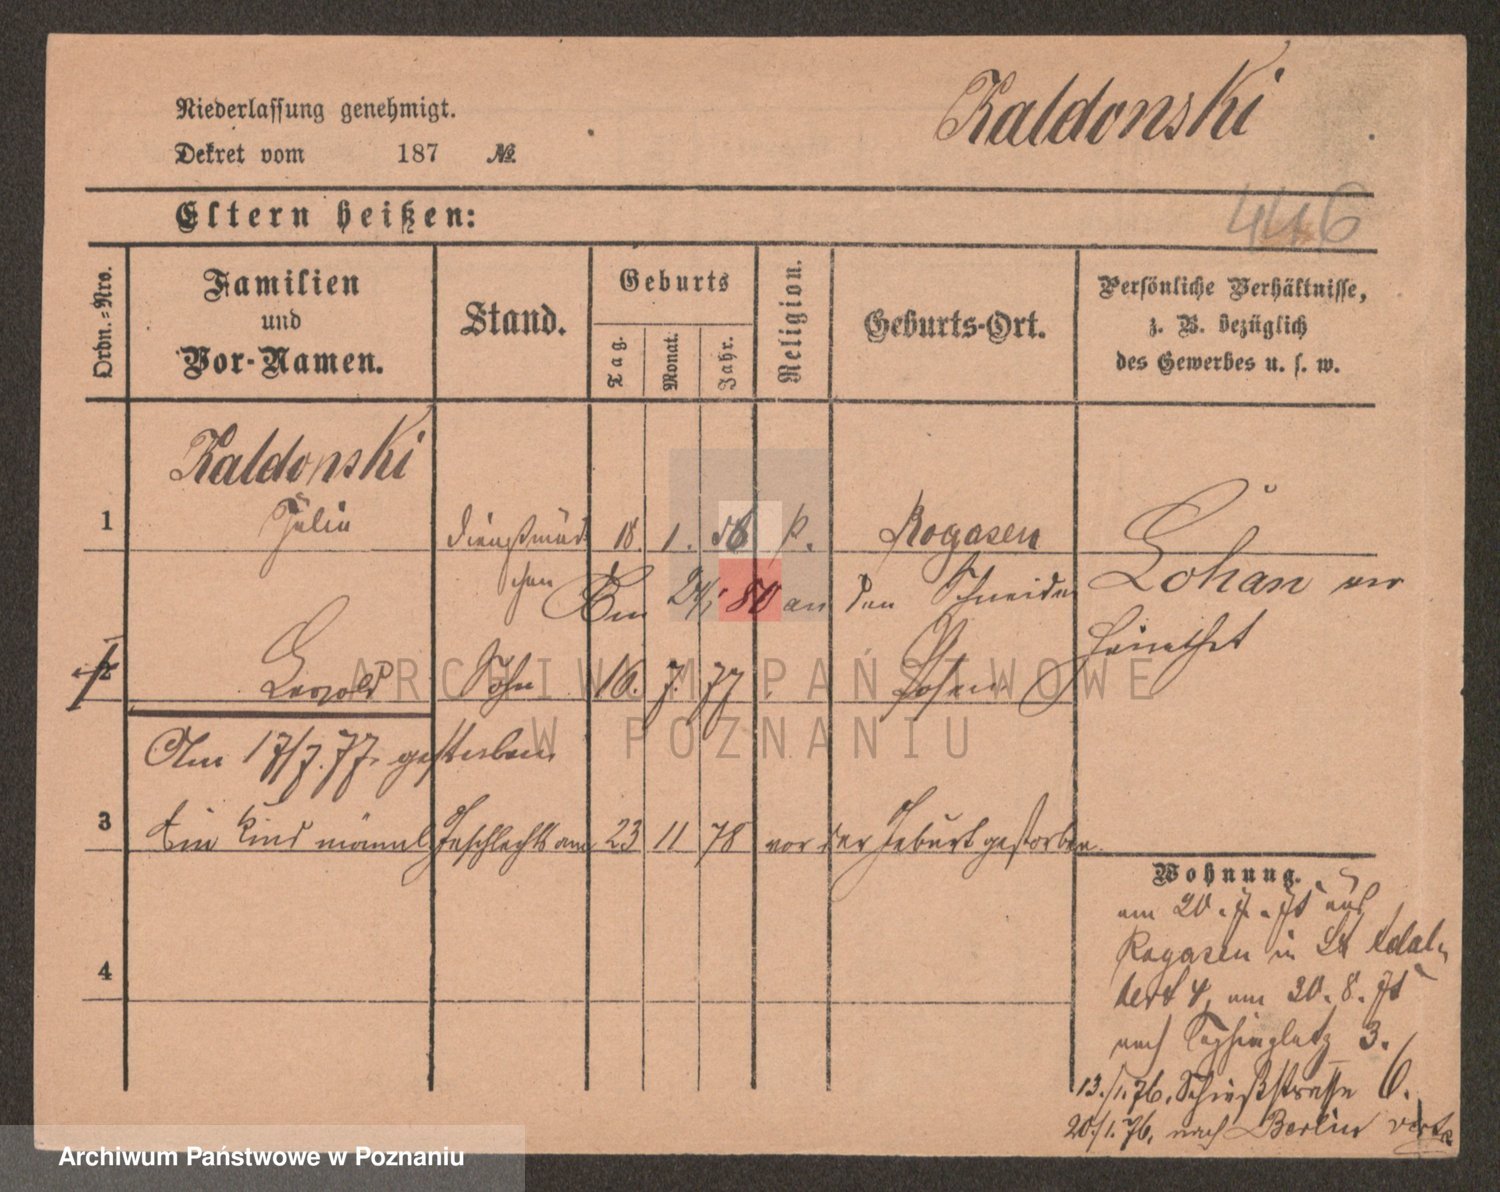 Niederlassung genehmigt.
Kaldonski
Dekret vom 187 №
446
Eltern heißen:
Ordn.-Nro.
Familien und Vor-Namen.
Stand.
Geburts
Tag.
Monat.
Jahr.
Religion.
Geburts-Ort.
Persönliche Verhältnisse,
z. B. bezüglich
des Gewerbes u. s. w.
Kaldonski
1 Julie Dienstmäd 18. 1. 56 k. Rogasen
chen Am 24/1 80 an den Schneider Lohan ver
heirathet
2 Leopold Sohn 16. 7. 77 Posen
Am 17/7. 77. gestorben
3 Ein Kind männl Geschlechts am 23 11 78 vor der Geburt gestorben.
Wohnung.
am 20. 7. 75 aus
Rogasen in St Adal-
bert 4, am 20. 8. 75
4
nach Sapiehaplatz 3.
13./1. 76. Schießstrasse 6.
20./1. 76. nach Berlin
ARCHIWUM PAŃSTWOWE
W POZNANIU
Archiwum Państwowe w Poznaniu